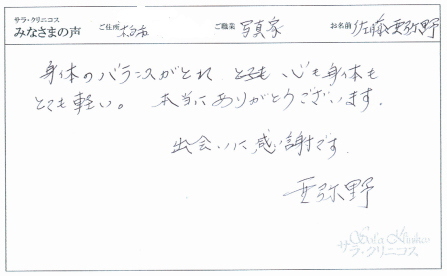 サラ・クリニコス
みなさまの声 ご住所 ご職業 写真家 お名前 佐藤亜弥野
身体のバランスがとれ とても 心も身体も
とても軽い。 本当にありがとうございます.
出会いに感謝です.
亜弥野
サラ・クリニコス